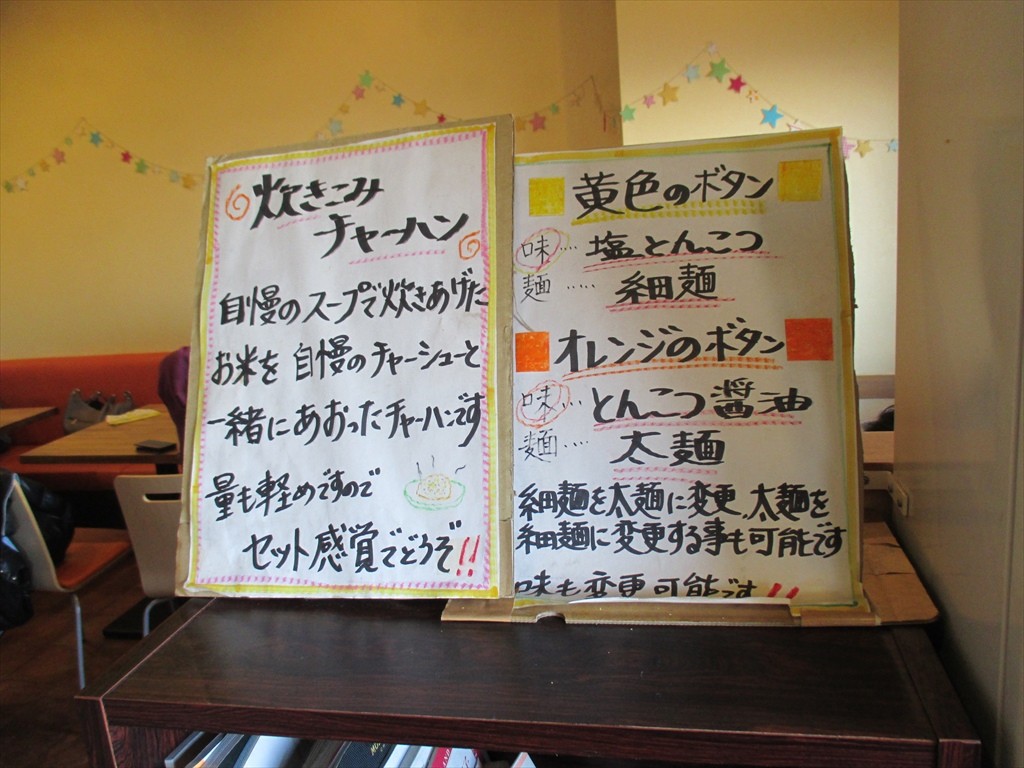 炊きこみ
チャーハン
自慢のスープで炊きあげた
お米を 自慢のチャーシューと
一緒にあおったチャーハンです
量も軽めですので
セット感覚でどうぞ!!
黄色のボタン
味‥‥塩とんこつ
麺‥‥‥細麺
オレンジのボタン
味‥‥とんこつ醤油
麺‥‥太麺
細麺を太麺に変更、太麺を
細麺に変更する事も可能です
味も変更可能です!!